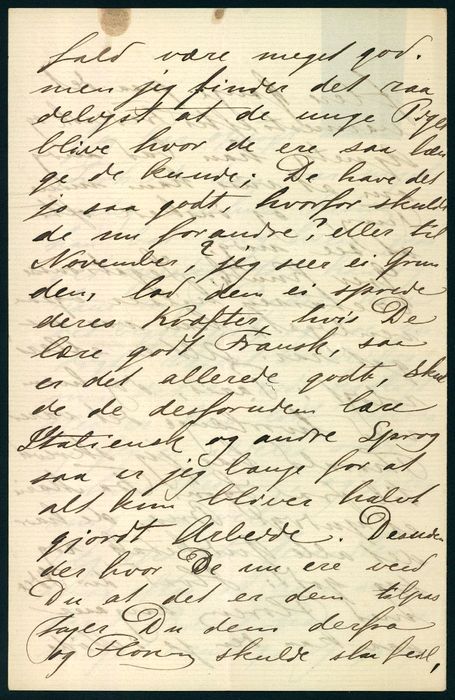 fald være meget god.
men jeg finder det raa
deligst at de unge Piger
blive hvor de ere saa læn
ge de kunde; De have det
jo saa godt, hvorfor skulde
de nu forandre? eller til
November? jeg seer ei Grun
den, lad dem ei sprede
deres Kræfter hvis De
lære godt Fransk, saa
er det allerede godt, skul
de de desforuden lære
Italiensk og andre Sprog
saa er jeg bange for at
alt kun bliver halvt
gjordt Arbedde. Desuden
der hvor De nu ere veed
Du at det er dem tilpas
tager Du dem derfra
og Florenz skulde slaa feil,